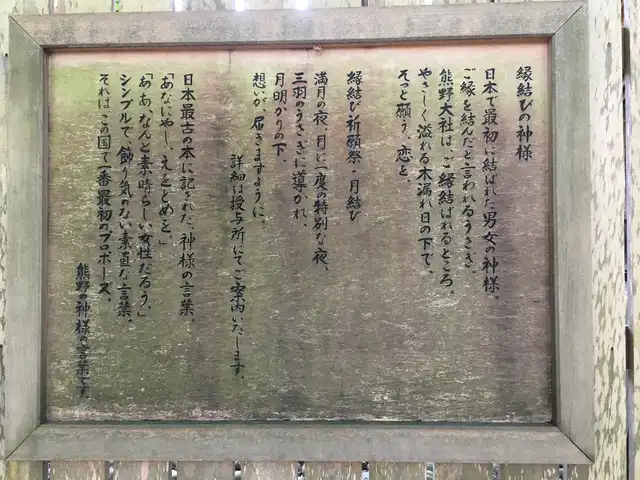 縁結びの神様
日本で最初に結ばれた男女の神様。
ご縁を結んだと言われるうさぎ。
熊野大社は、ご縁結ばれるところ。
やさしく溢れる木漏れ日の下で、
そっと願う、恋を。
縁結び祈願祭・月結び
満月の夜、月に一度の特別な夜。
三羽のうさぎに導かれ、
月明かりの下、
想いが、届きますように。
詳細は授与所にてご案内いたします。
日本最古の本に記された、神様の言葉。
「あなにやし、えをとめを。」
「ああ、なんと素晴らしい女性だろう。」
シンプルで、飾り気のない素直な言葉。
それは、この国で一番最初のプロポーズ。
熊野の神様の言葉です。